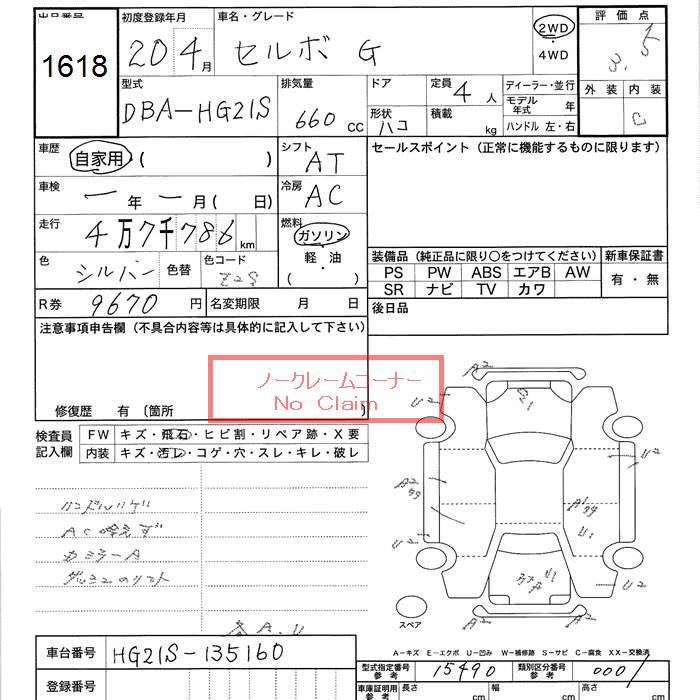 出品番号 初度登録年月 車名・グレード 評価点
1618 20 4月 セルボ G 2WD・4WD 3.5
型式 排気量 ドア 定員 4人 ディーラー・並行 外装 内装
DBA-HG21S 660cc 形状 ハコ 積載 kg モデル年式 年 C
ハンドル 左・右
車歴 自家用・( ) シフト AT セールスポイント (正常に機能するものに限ります)
車検 ー年ー月( 日) 冷房 AC
走行 4万7千786km 燃料 ガソリン
軽・油
( )
色 シルバー 色替 色コード Z2S
装備品 (純正品に限り○をつけてください) 新車保証書
PS PW ABS エアB AW 有・無
SR ナビ TV カワ
R券 9670円 名変期限 月 日 後日品
注意事項申告欄 (不具合内容等は具体的に記入して下さい)
ノークレームコーナー
No Claim
修復歴 有 〔箇所
検査員記入欄 FW キズ・飛石・ヒビ割・リペア跡・X要
内装 キズ・汚レ・コゲ・穴・スレ・キレ・破レ
ハンドルハゲ
AC冷えず
カミラーA
A2
U2
U2
A2
A1
U1
U2
U2
A2
A2
スペア
A-キズ E-エクボ U-凹み W-補修跡 S-サビ C-腐食 XX-交換済
車台番号 HG21S-135160
型式指定番号 参考 15490 類別区分番号 参考 0001
登録番号 車庫証明用 参考 長さ cm 幅 cm 高さ cm